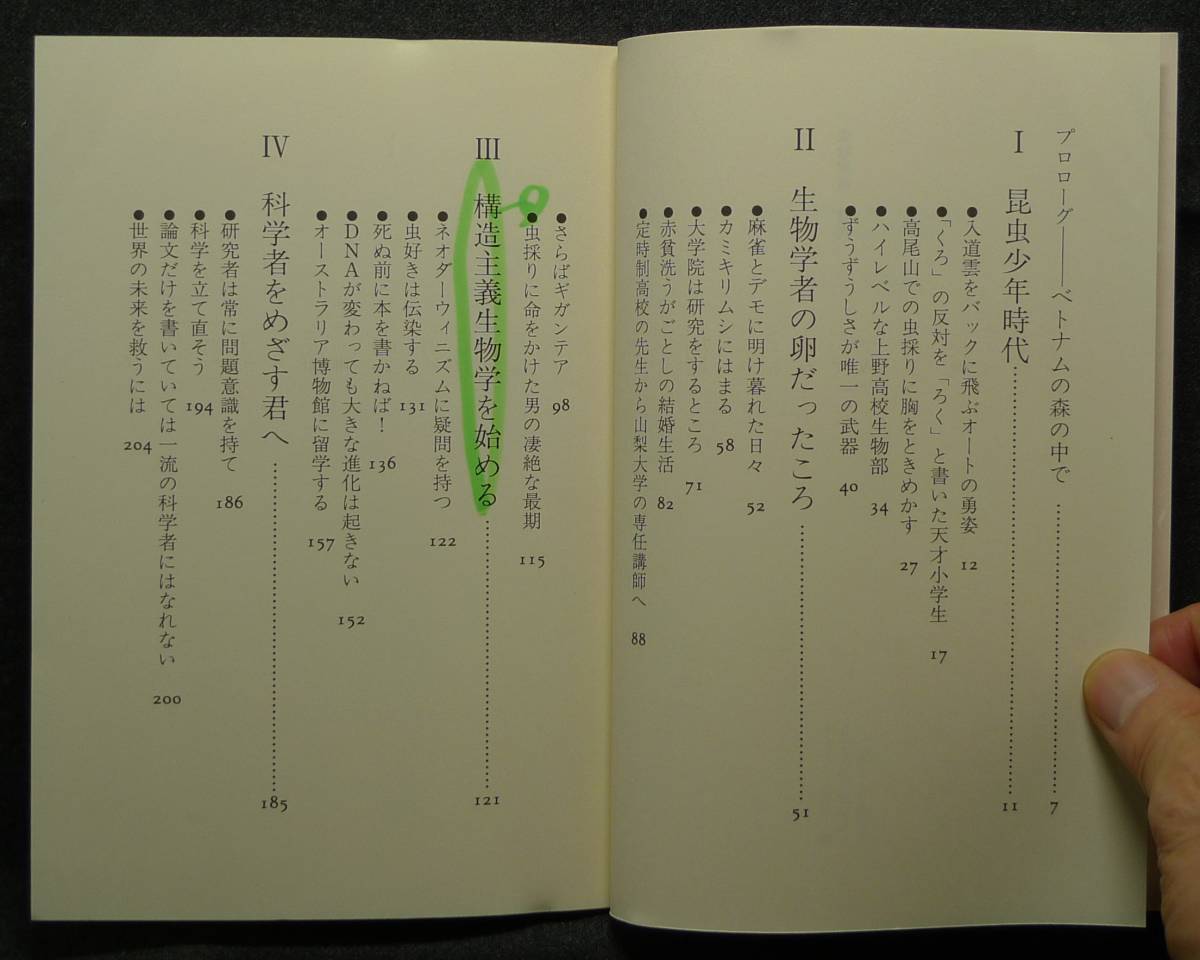 プロローグ――ベトナムの森の中で……7
I 昆虫少年時代……11
●入道雲をバックに飛ぶオートの勇姿 12
●「くろ」の反対を「ろく」と書いた天才小学生 17
●高尾山での虫採りに胸をときめかす 27
●ハイレベルな上野高校生物部 34
●ずうずうしさが唯一の武器 40
II 生物学者の卵だったころ……51
●麻雀とデモに明け暮れた日々 52
●カミキリムシにはまる 58
●大学院は研究をするところ 71
●赤貧洗うがごとしの結婚生活 82
●定時制高校の先生から山梨大学の専任講師へ 88
●さらばギガンテア 98
●虫採りに命をかけた男の凄絶な最期 115
III 構造主義生物学を始める……121
●ネオダーウィニズムに疑問を持つ 122
●虫好きは伝染する 131
●死ぬ前に本を書かねば！ 136
●DNAが変わっても大きな進化は起きない 152
●オーストラリア博物館に留学する 157
IV 科学者をめざす君へ……185
●研究者は常に問題意識を持て 186
●科学を立て直そう 194
●論文だけを書いていては一流の科学者にはなれない 200
●世界の未来を救うには 204